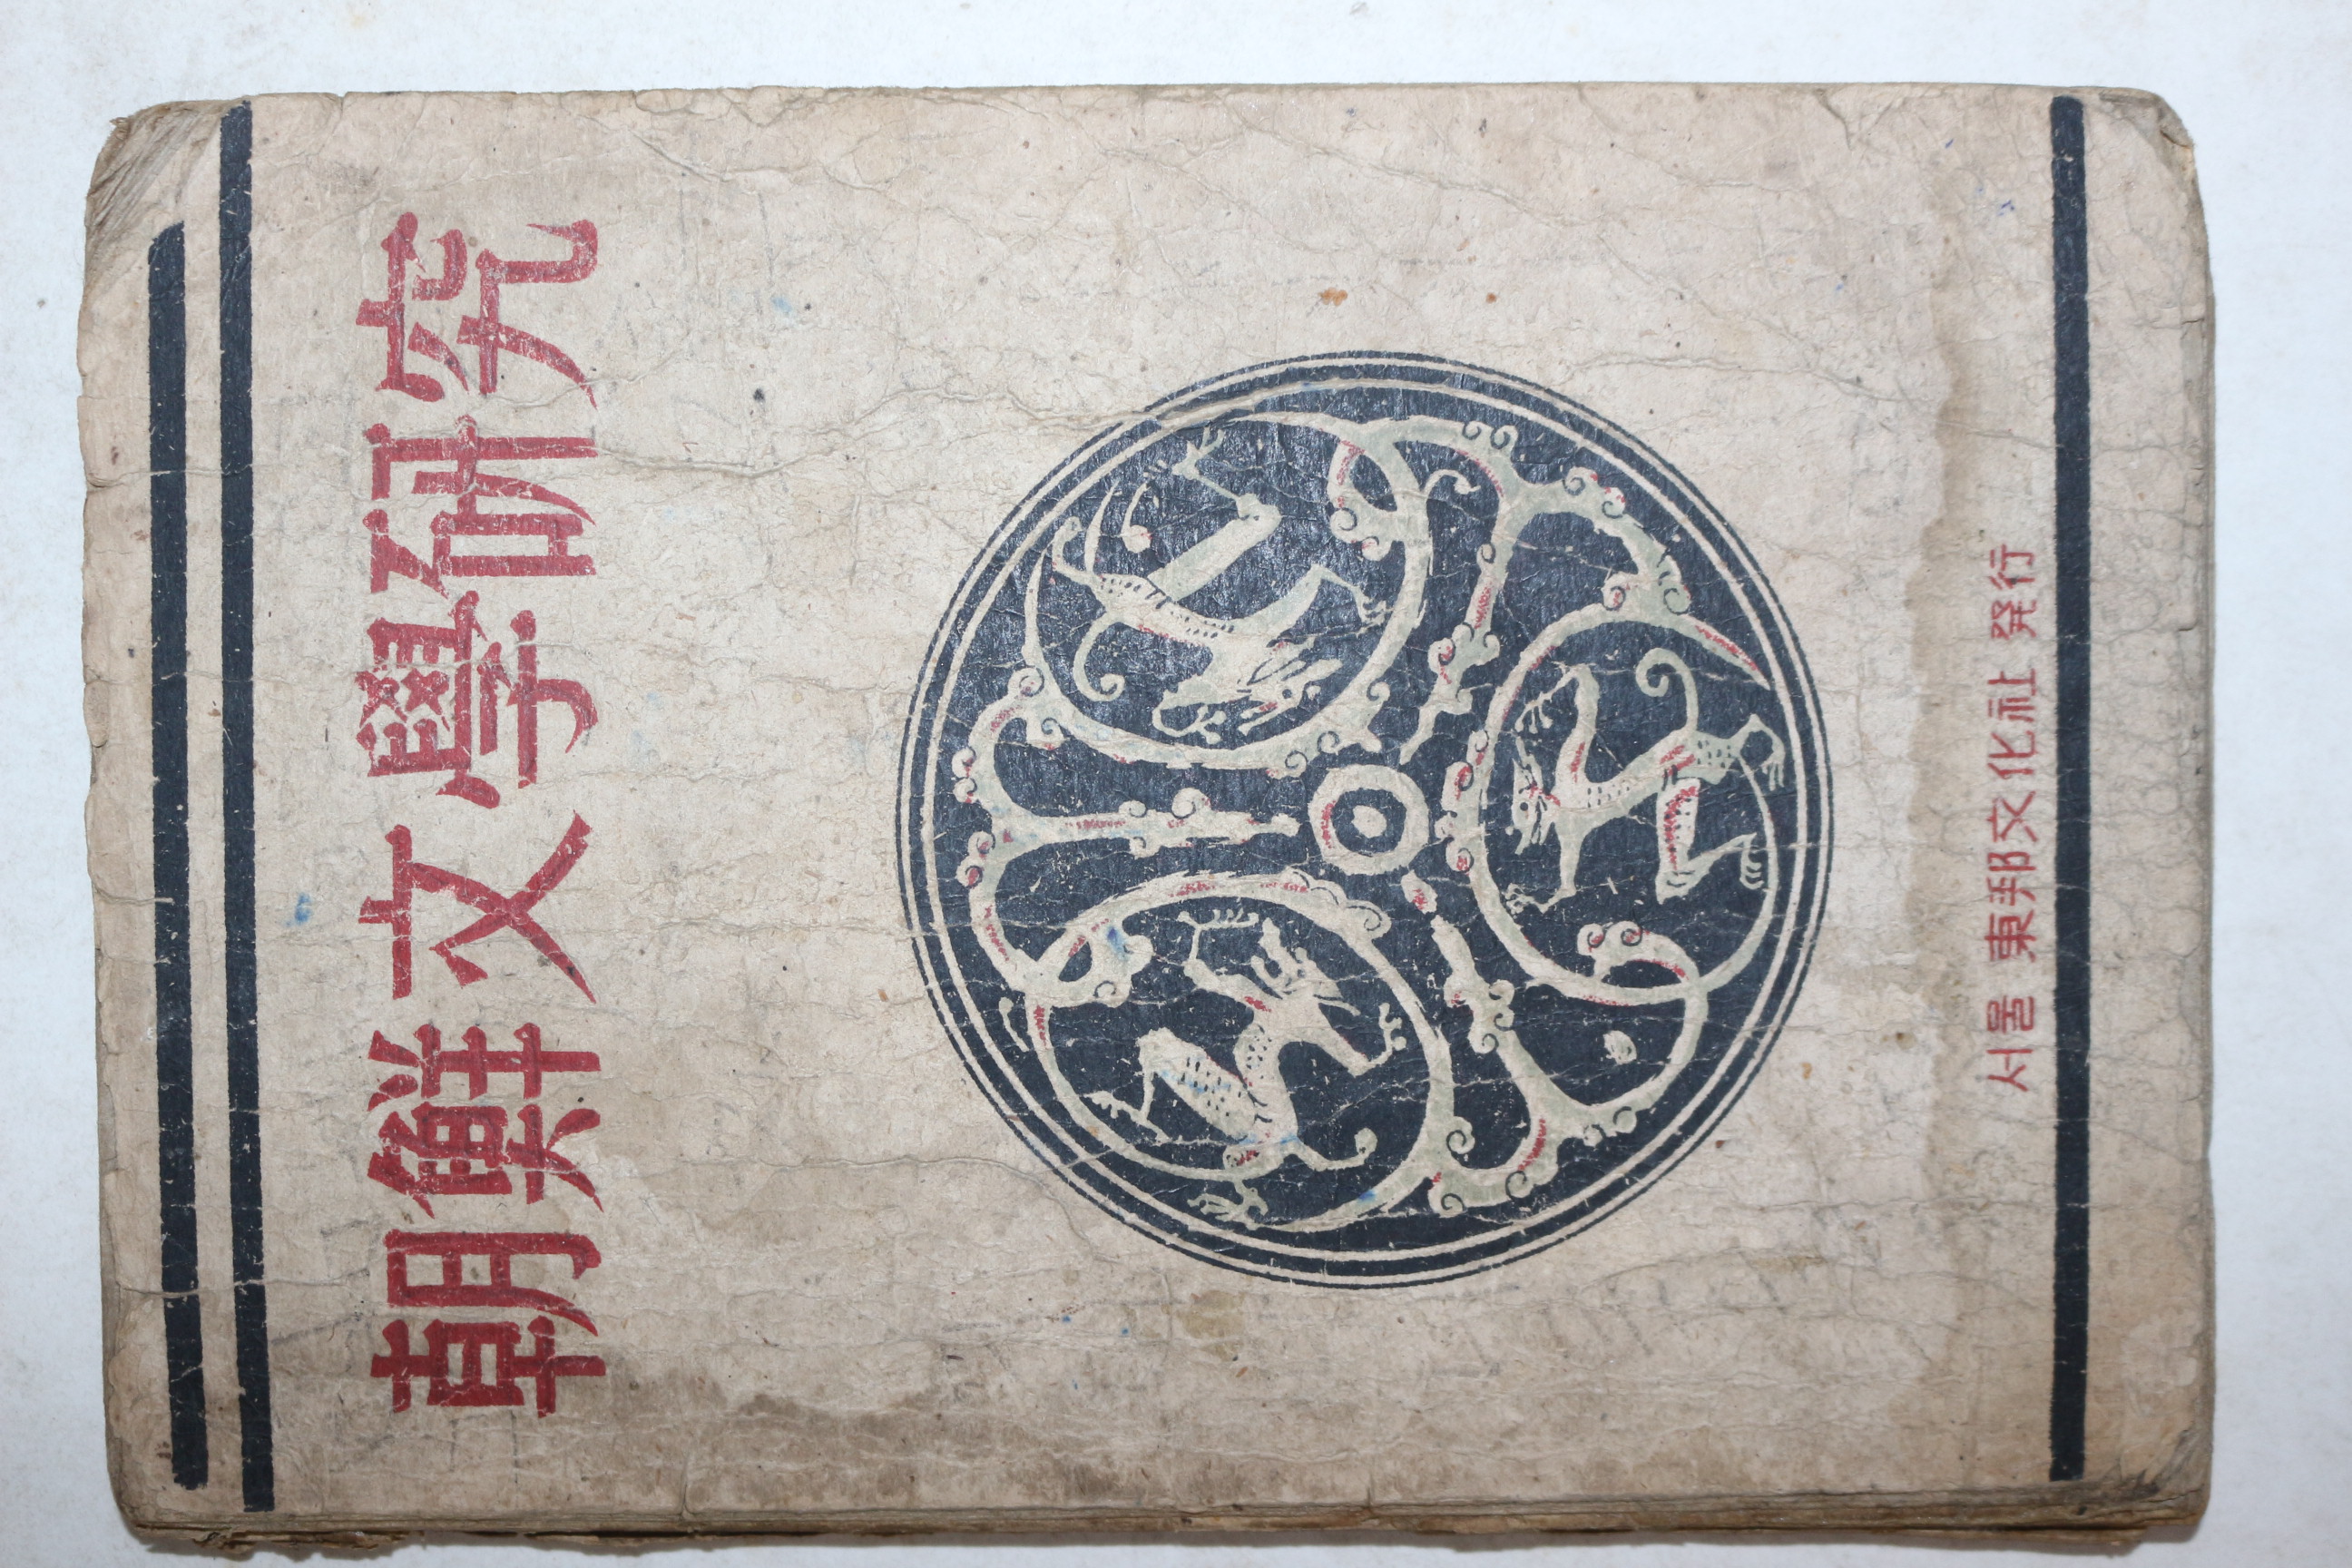 朝鮮文學研究
서울 東邦文化社 発行